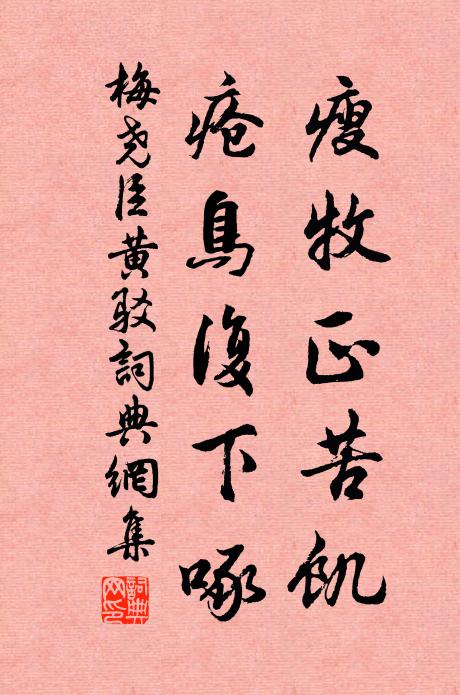 瘦牧正苦飢
瘡鳥復下啄
梅尧臣黄駁詞典網集
詞典网印